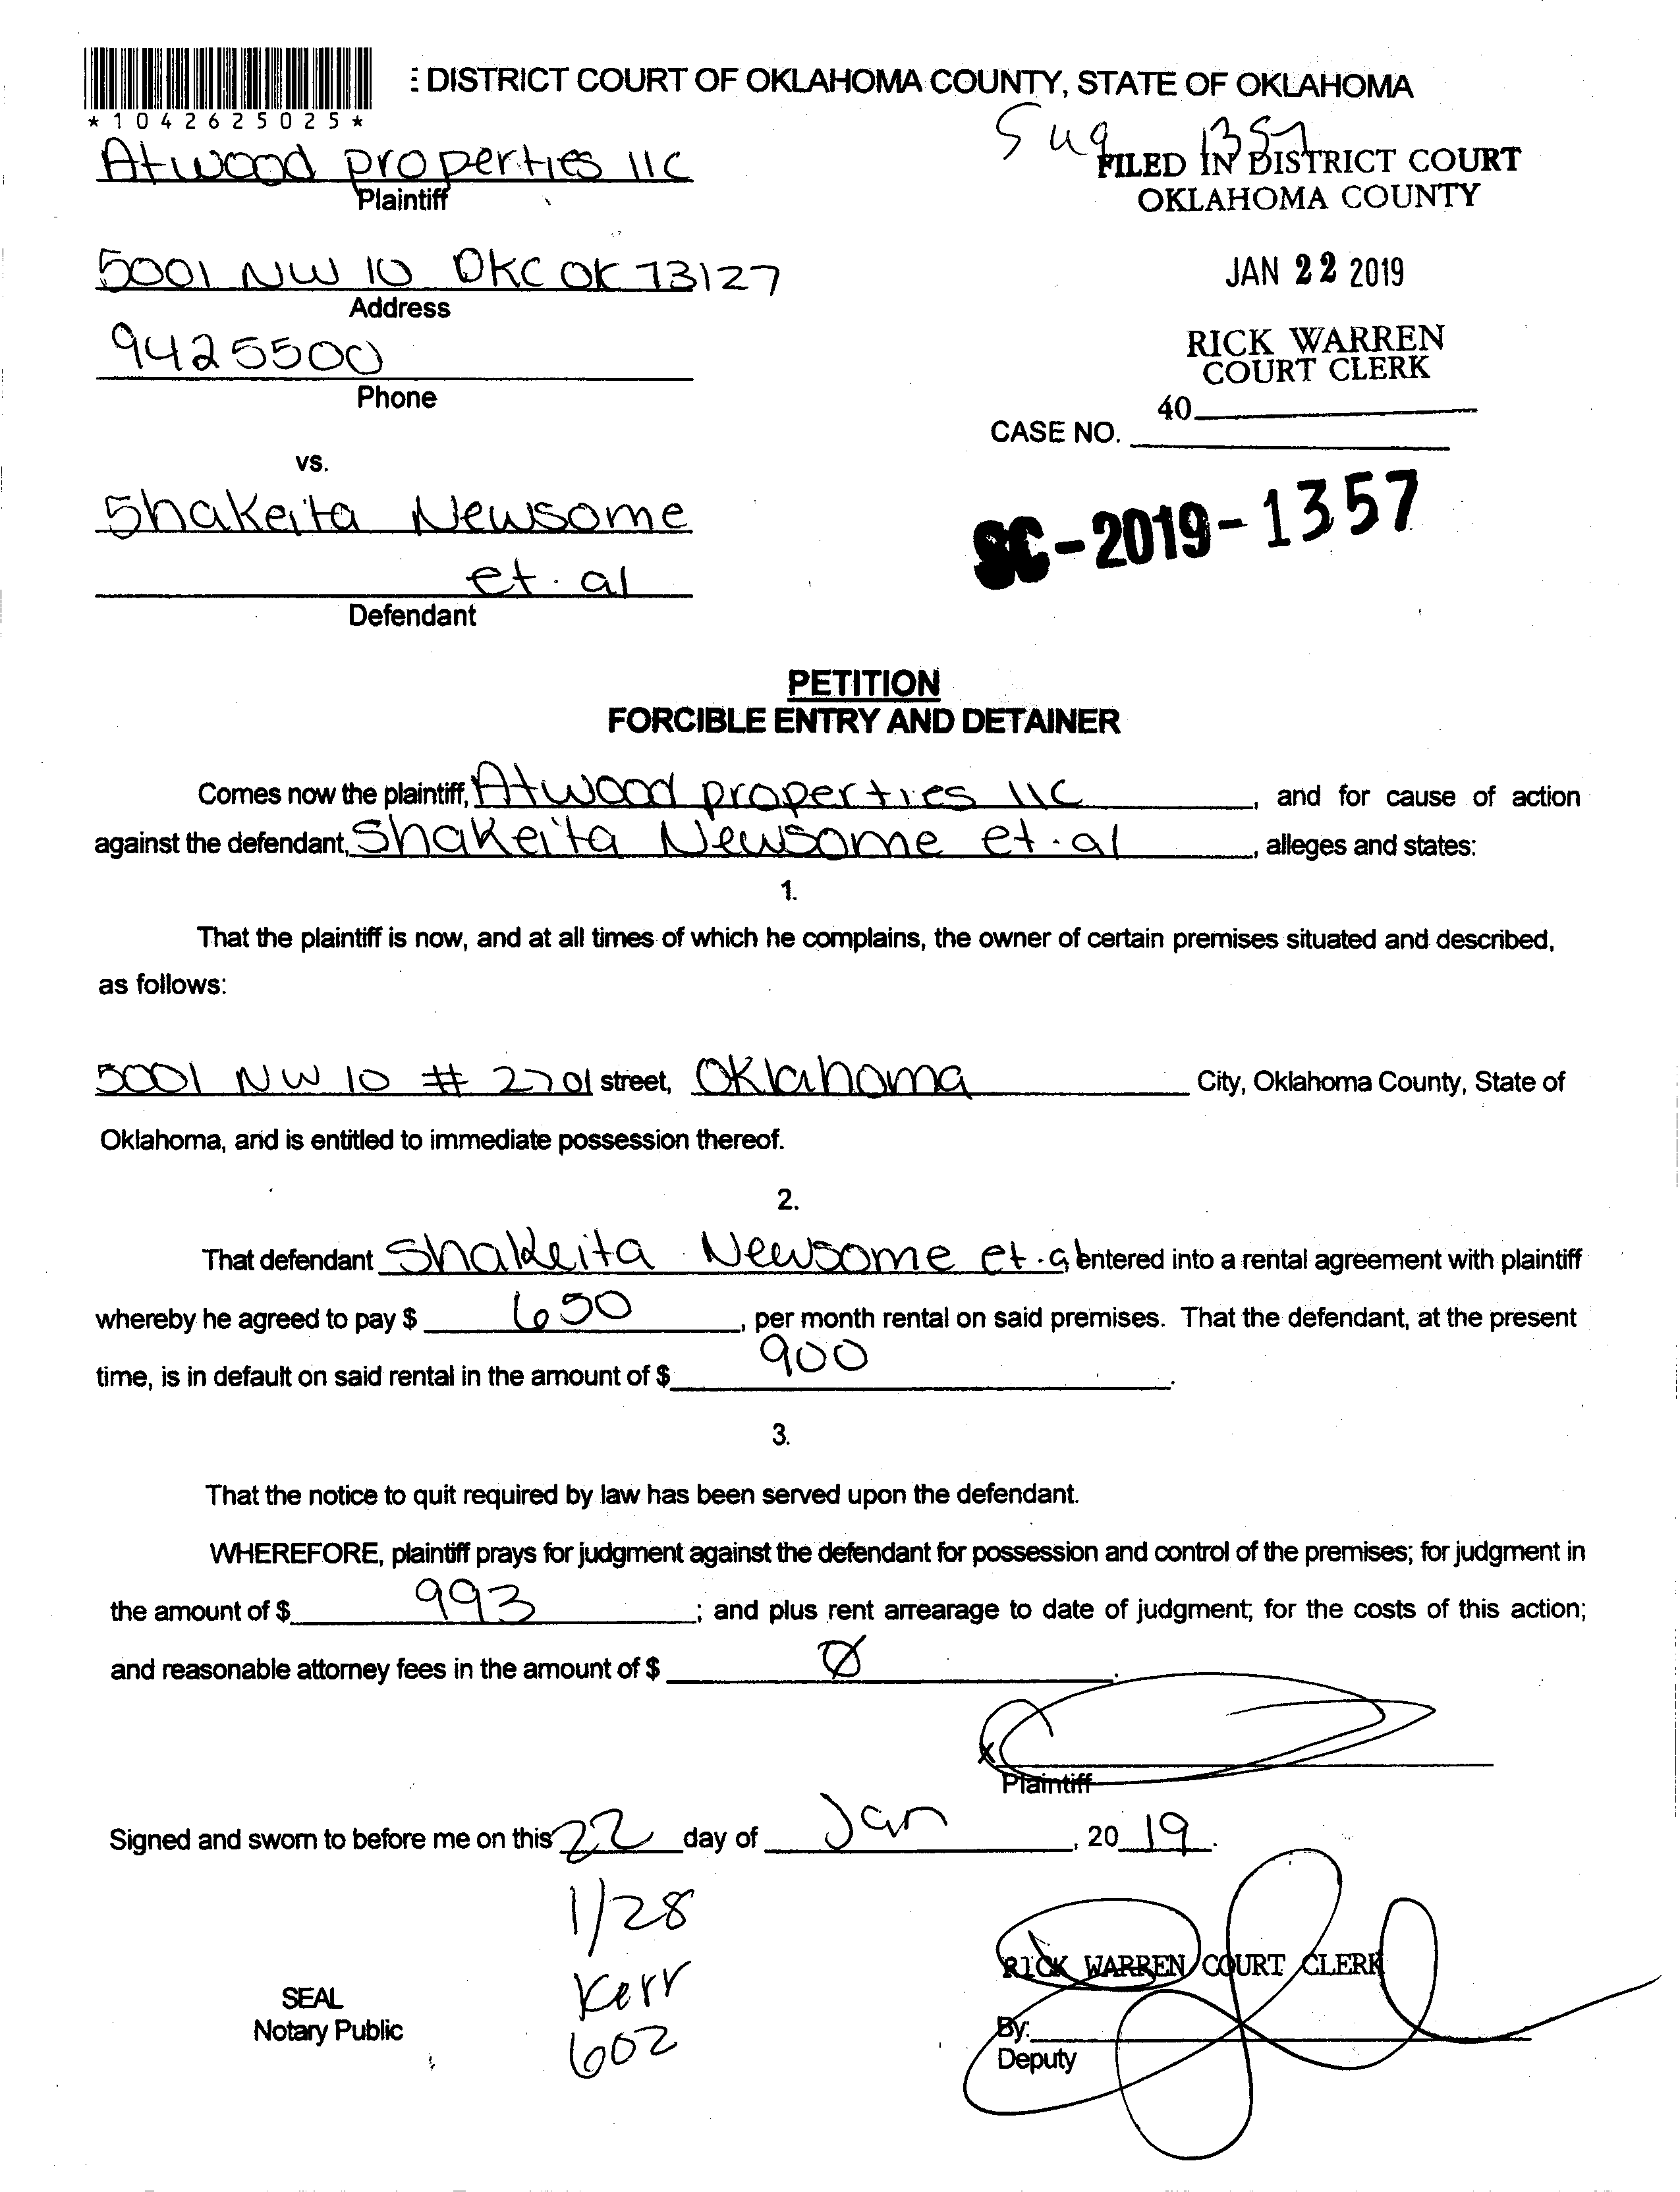 : DISTRICT COURT OF OKLAHOMA COUNTY, STATE OF OKLAHOMA
*1042625025*
Atwood properties llc
Plaintiff
FILED IN DISTRICT COURT
OKLAHOMA COUNTY
5001 NW 10 OKC OK 73127
Address
JAN 22 2019
9425500
Phone
RICK WARREN
COURT CLERK
40
CASE NO.
vs.
Shakeita Newsome
et. al
Defendant
SC-2019-1357
PETITION
FORCIBLE ENTRY AND DETAINER
Comes now the plaintiff, Atwood properties llc, and for cause of action
against the defendant, Shakeita Newsome et. al, alleges and states:
1.
That the plaintiff is now, and at all times of which he complains, the owner of certain premises situated and described,
as follows:
5001 NW 10 # 2701 street, Oklahoma City, Oklahoma County, State of
Oklahoma, and is entitled to immediate possession thereof.
2.
That defendant Shakeita Newsome et. al entered into a rental agreement with plaintiff
whereby he agreed to pay $ 650, per month rental on said premises. That the defendant, at the present
time, is in default on said rental in the amount of $ 900.
3.
That the notice to quit required by law has been served upon the defendant.
WHEREFORE, plaintiff prays for judgment against the defendant for possession and control of the premises; for judgment in
the amount of $ 993; and plus rent arrearage to date of judgment; for the costs of this action;
and reasonable attorney fees in the amount of $ Ø.
x
Plaintiff
Signed and sworn to before me on this 22 day of Jan, 20 19.
1/28
Kerr
602
RICK WARREN COURT CLERK
SEAL
Notary Public
By:
Deputy